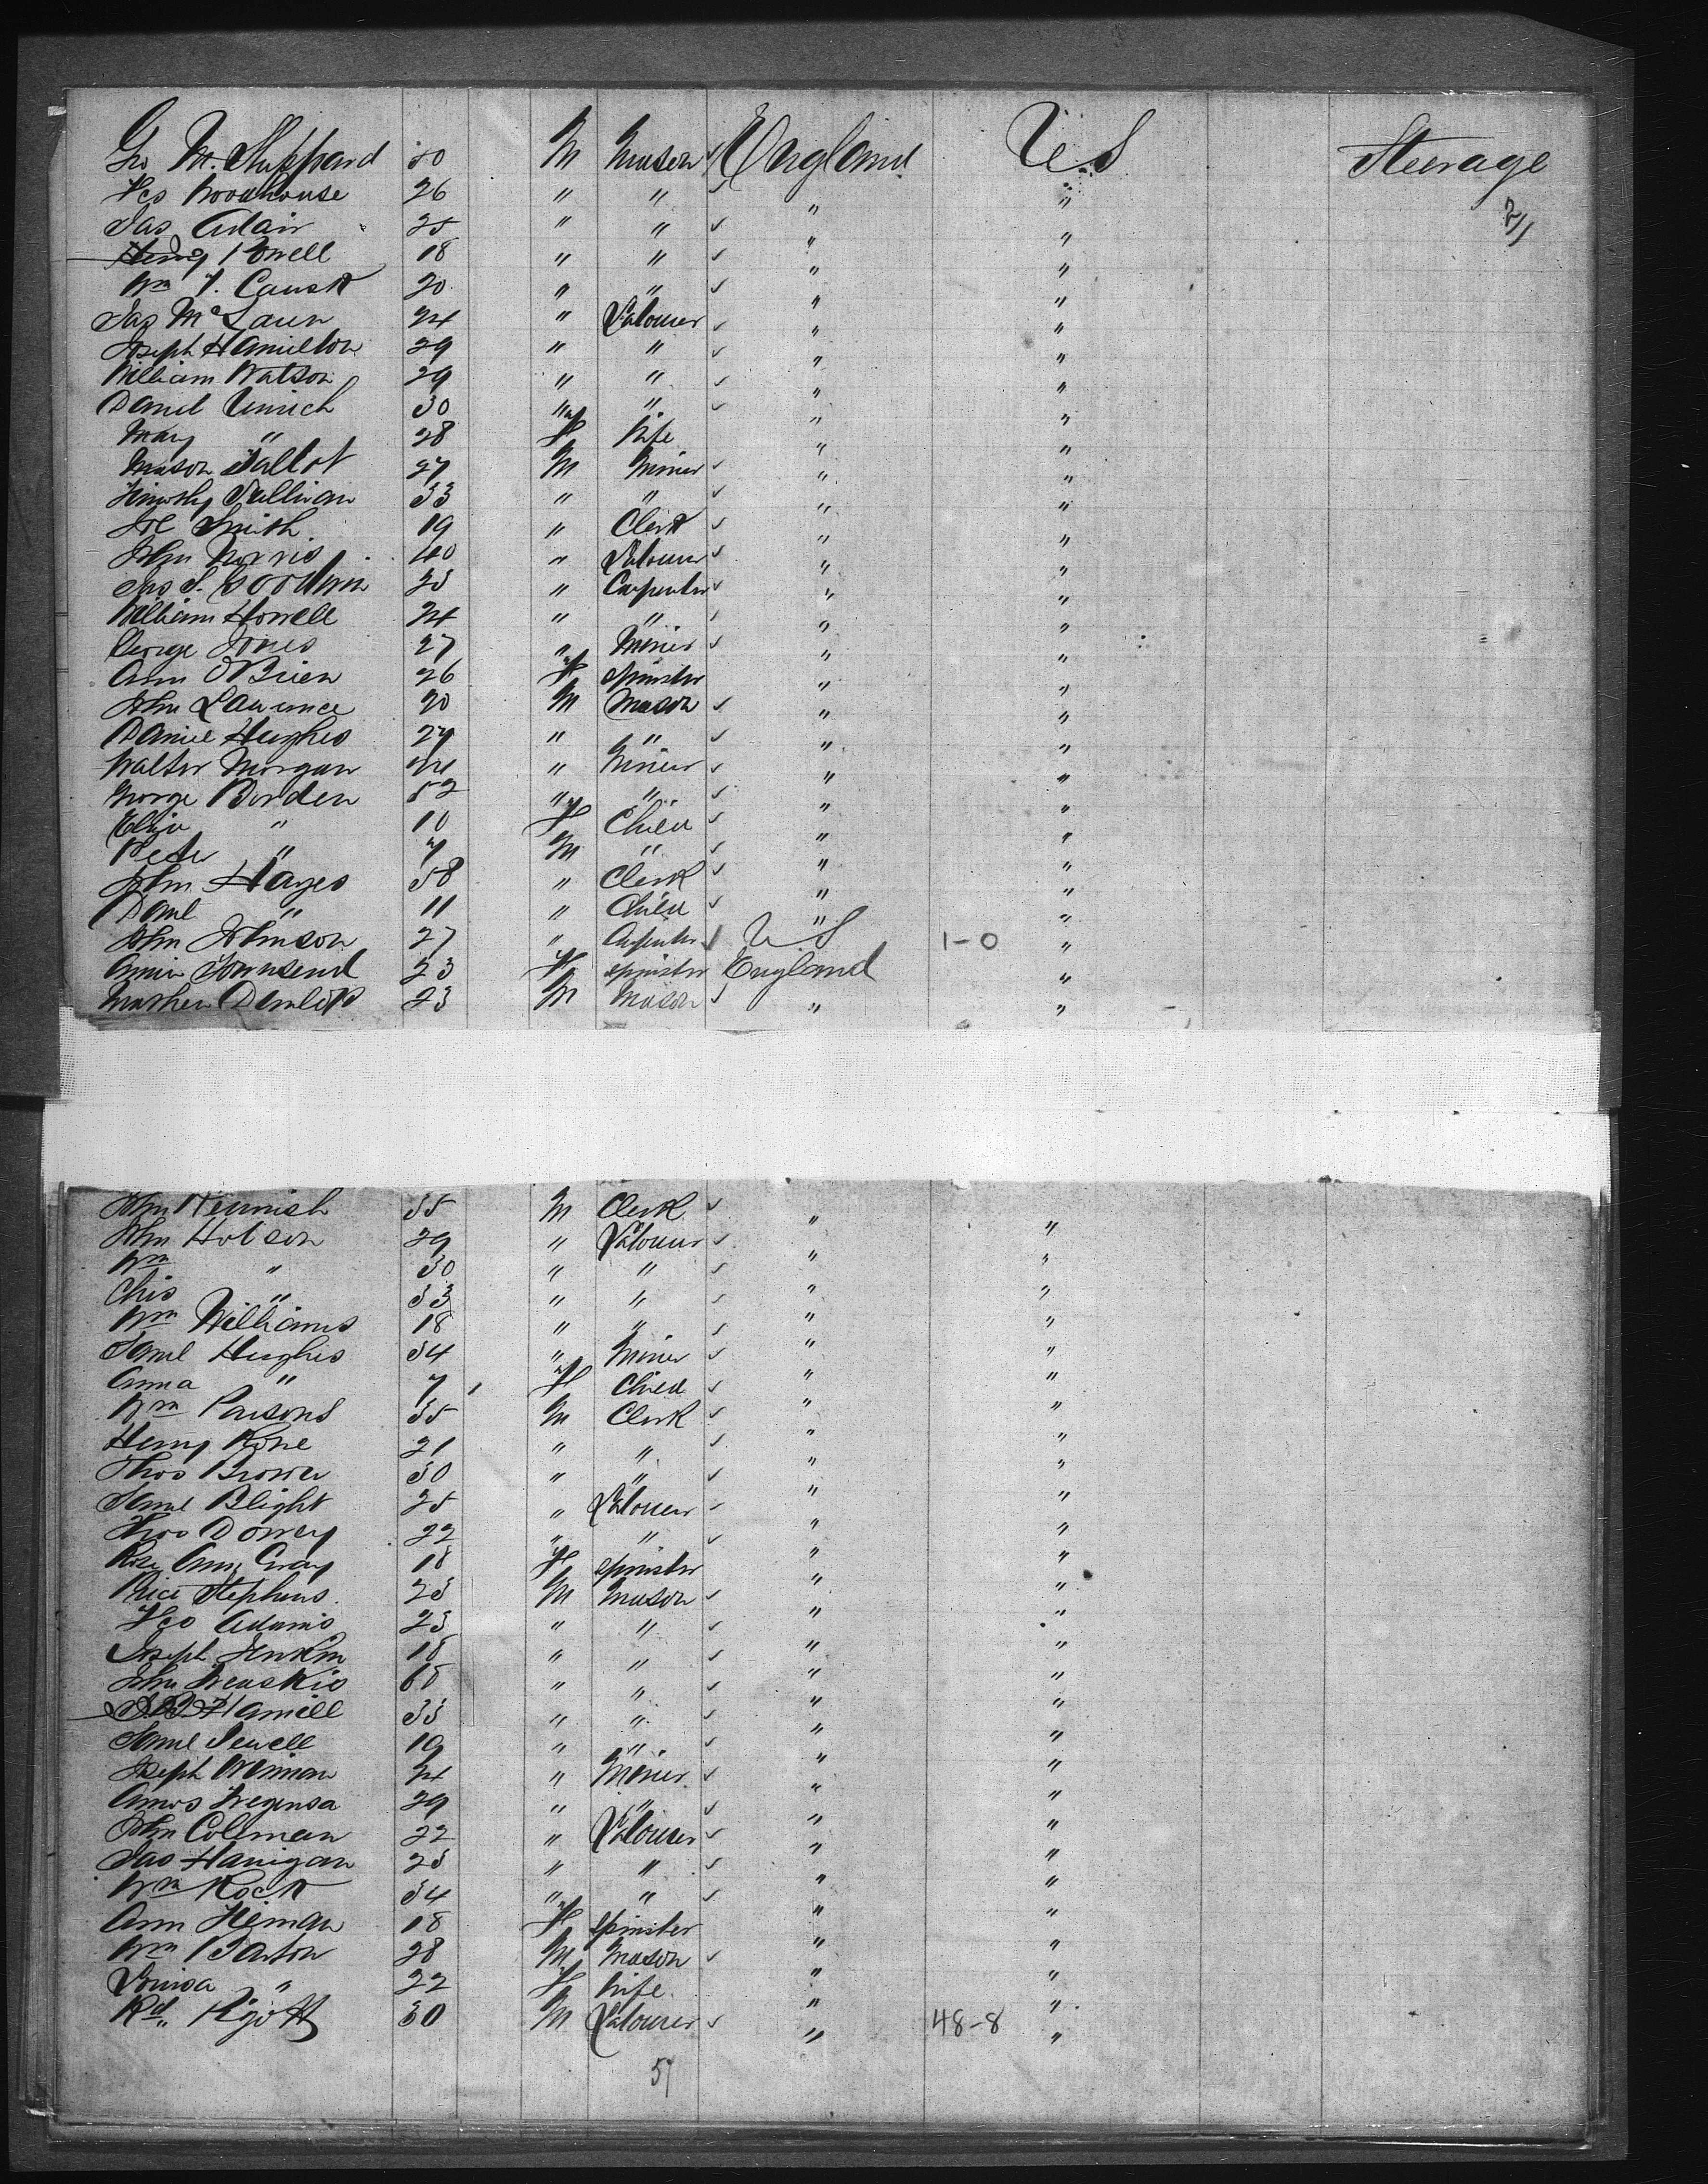 Geo M. Sheppard 50 M Mason England U S Steerage
Geo Woodhouse 26 " " " " 2/1
Jas Adair 25 " " " "
Henry Powell 18 " " " "
Wm J. 20 " " " "
Jas Mc 24 " Labourer " "
Joseph Hamilton 29 " " " "
William Watson 29 " " " "
Daniel 30 " " " "
Mary " 28 F Wife " "
Mason Tallot 27 M Miner " "
Timothy Sullivan 33 " " " "
Joe Smith 19 " Clerk " "
John Norris 40 " Labourer " "
Jas S. Goodwin 25 " Carpenter " "
William Howell 24 " " " "
George Jones 27 " Miner " "
Ann OBrien 26 F spinster " "
John Lawrence 20 M Mason " "
Daniel Hughes 27 " " " "
Walter Morgan " Miner " "
George Borden 52 " " " "
Eliza " 10 F Child " "
Peter " 7 M " " "
John Hayes 58 " Clerk " "
Danl " 11 " Child " "
John Johnson 27 " Carpenter U S 1-0 "
Annie Townsend 23 F spinster England "
Mathew Dunlop 23 M Mason " "
John 35 M Clerk " "
John Hobson 29 " Labourer " "
Wm " 30 " " " "
Chis " 33 " " " "
Wm Williams 18 " " " "
Saml Hughes 34 " Miner " "
Anna " 7 F Child " "
Wm Parsons 35 M Clerk " "
Henry 21 " " " "
Thos Brown 30 " " " "
Saml Blight 25 " Labourer " "
Thos Dorrey 22 " " " "
Rose Ann Gray 18 F spinster " "
Price Stephens 23 M Mason " "
Geo Adams 23 " " " "
Joseph Jenkin 18 " " " "
John " " " "
Hamill 33 " " " "
Saml Sewell 19 " " " "
Joseph 24 " Miner " "
Amos 29 " " " "
John Coleman 22 " Labourer " "
Jas Hanigan 25 " " " "
Wm Rock 34 " " " "
Ann 18 F Spinster " "
Wm Barton 28 M Mason " "
Louisa " 22 F Wife " "
Rd. Pigott 30 M Labourer " 48-8 "
57